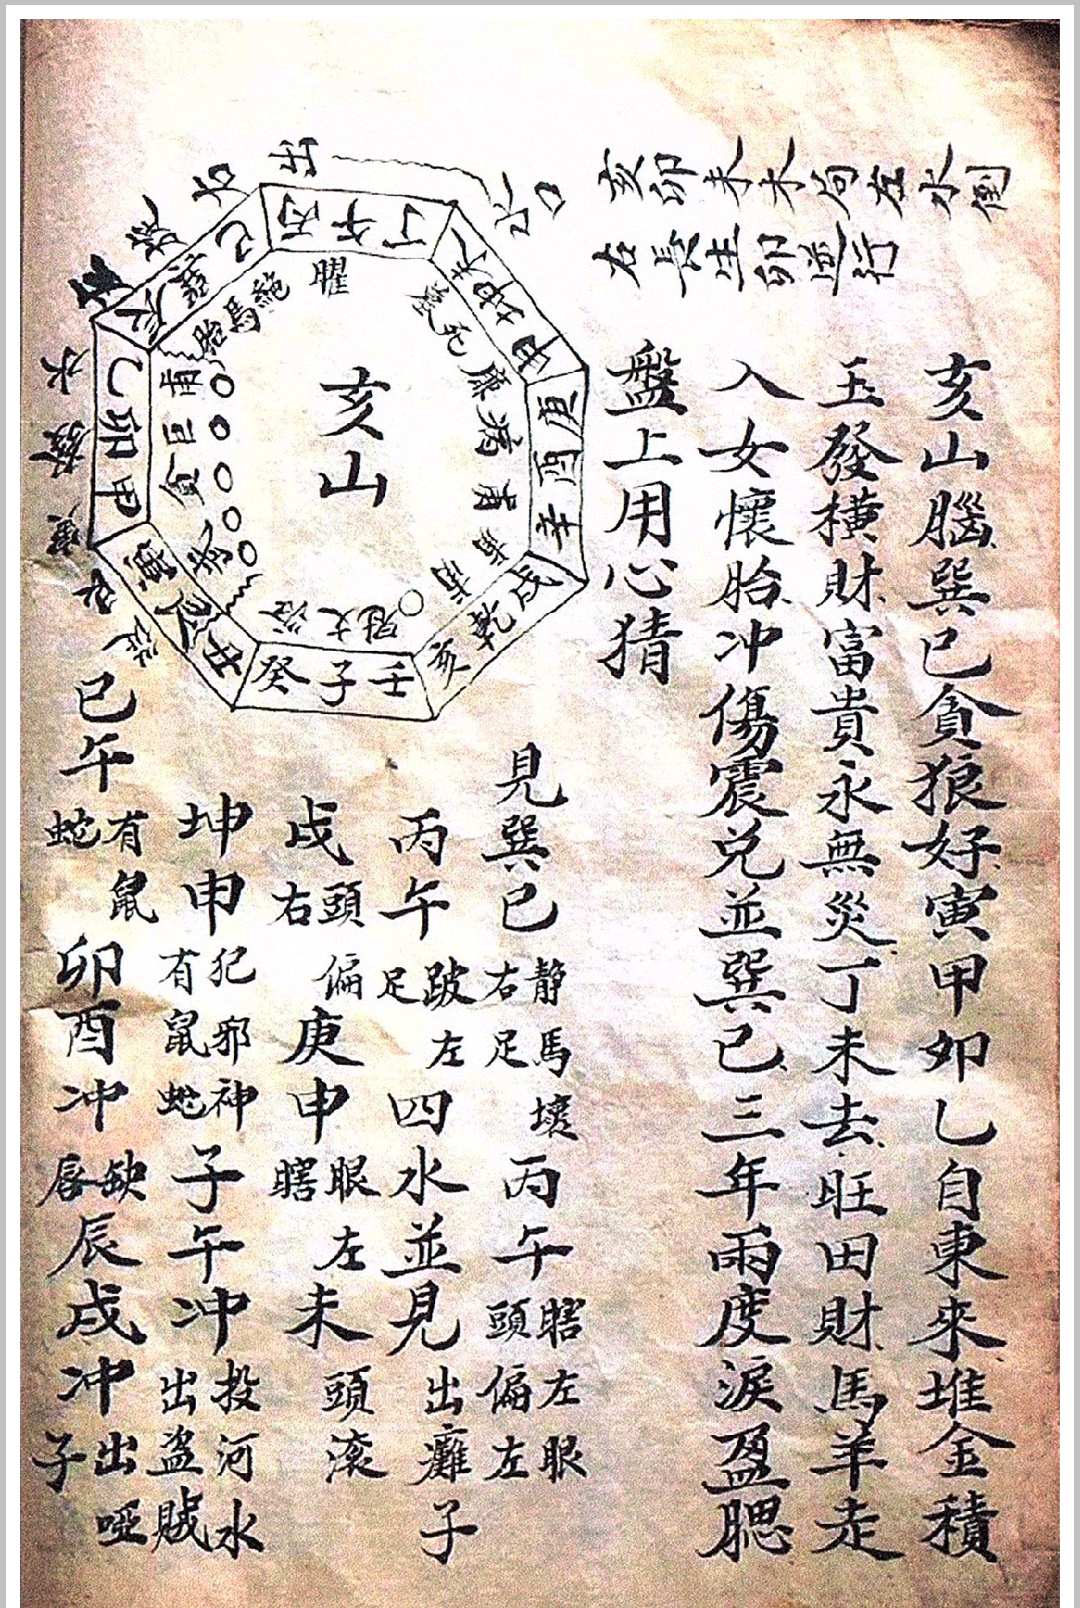 亥卯未木局左水倒
右長生卯並行
亥山腦巽巳貪狼好寅甲卯乙自東來堆金積
玉發横財富貴永無災丁未去旺田財馬羊走
入女懷胎冲傷震兌並巽巳三年兩度淚盈腮
盤上用心猜
見巽巳
静馬壞
右足
丙午
瞎左眼
頭偏左
丙午
跛左
足
四水並見
出癱子
戌
頭偏
右
庚申
眼左
瞎
未
頭滚
坤申
犯邪神
有鼠蛇
子午冲
投河水
出盗賊
巳午
有鼠
蛇
卯酉冲
缺
唇
辰戌冲
出啞
子
亥山
曜
丙午丁
未坤申
庚酉辛
戌乾亥
壬子癸
丑艮寅
甲卯乙
辰巽巳